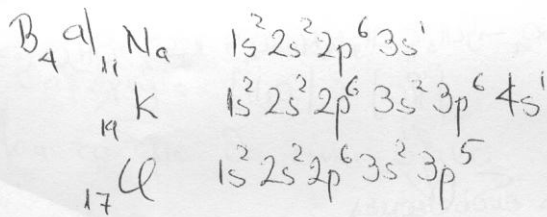 B₄ a) ₁₁Na 1s²2s²2p⁶3s¹
₁₉K 1s²2s²2p⁶3s²3p⁶4s¹
₁₇Cl 1s²2s²2p⁶3s²3p⁵